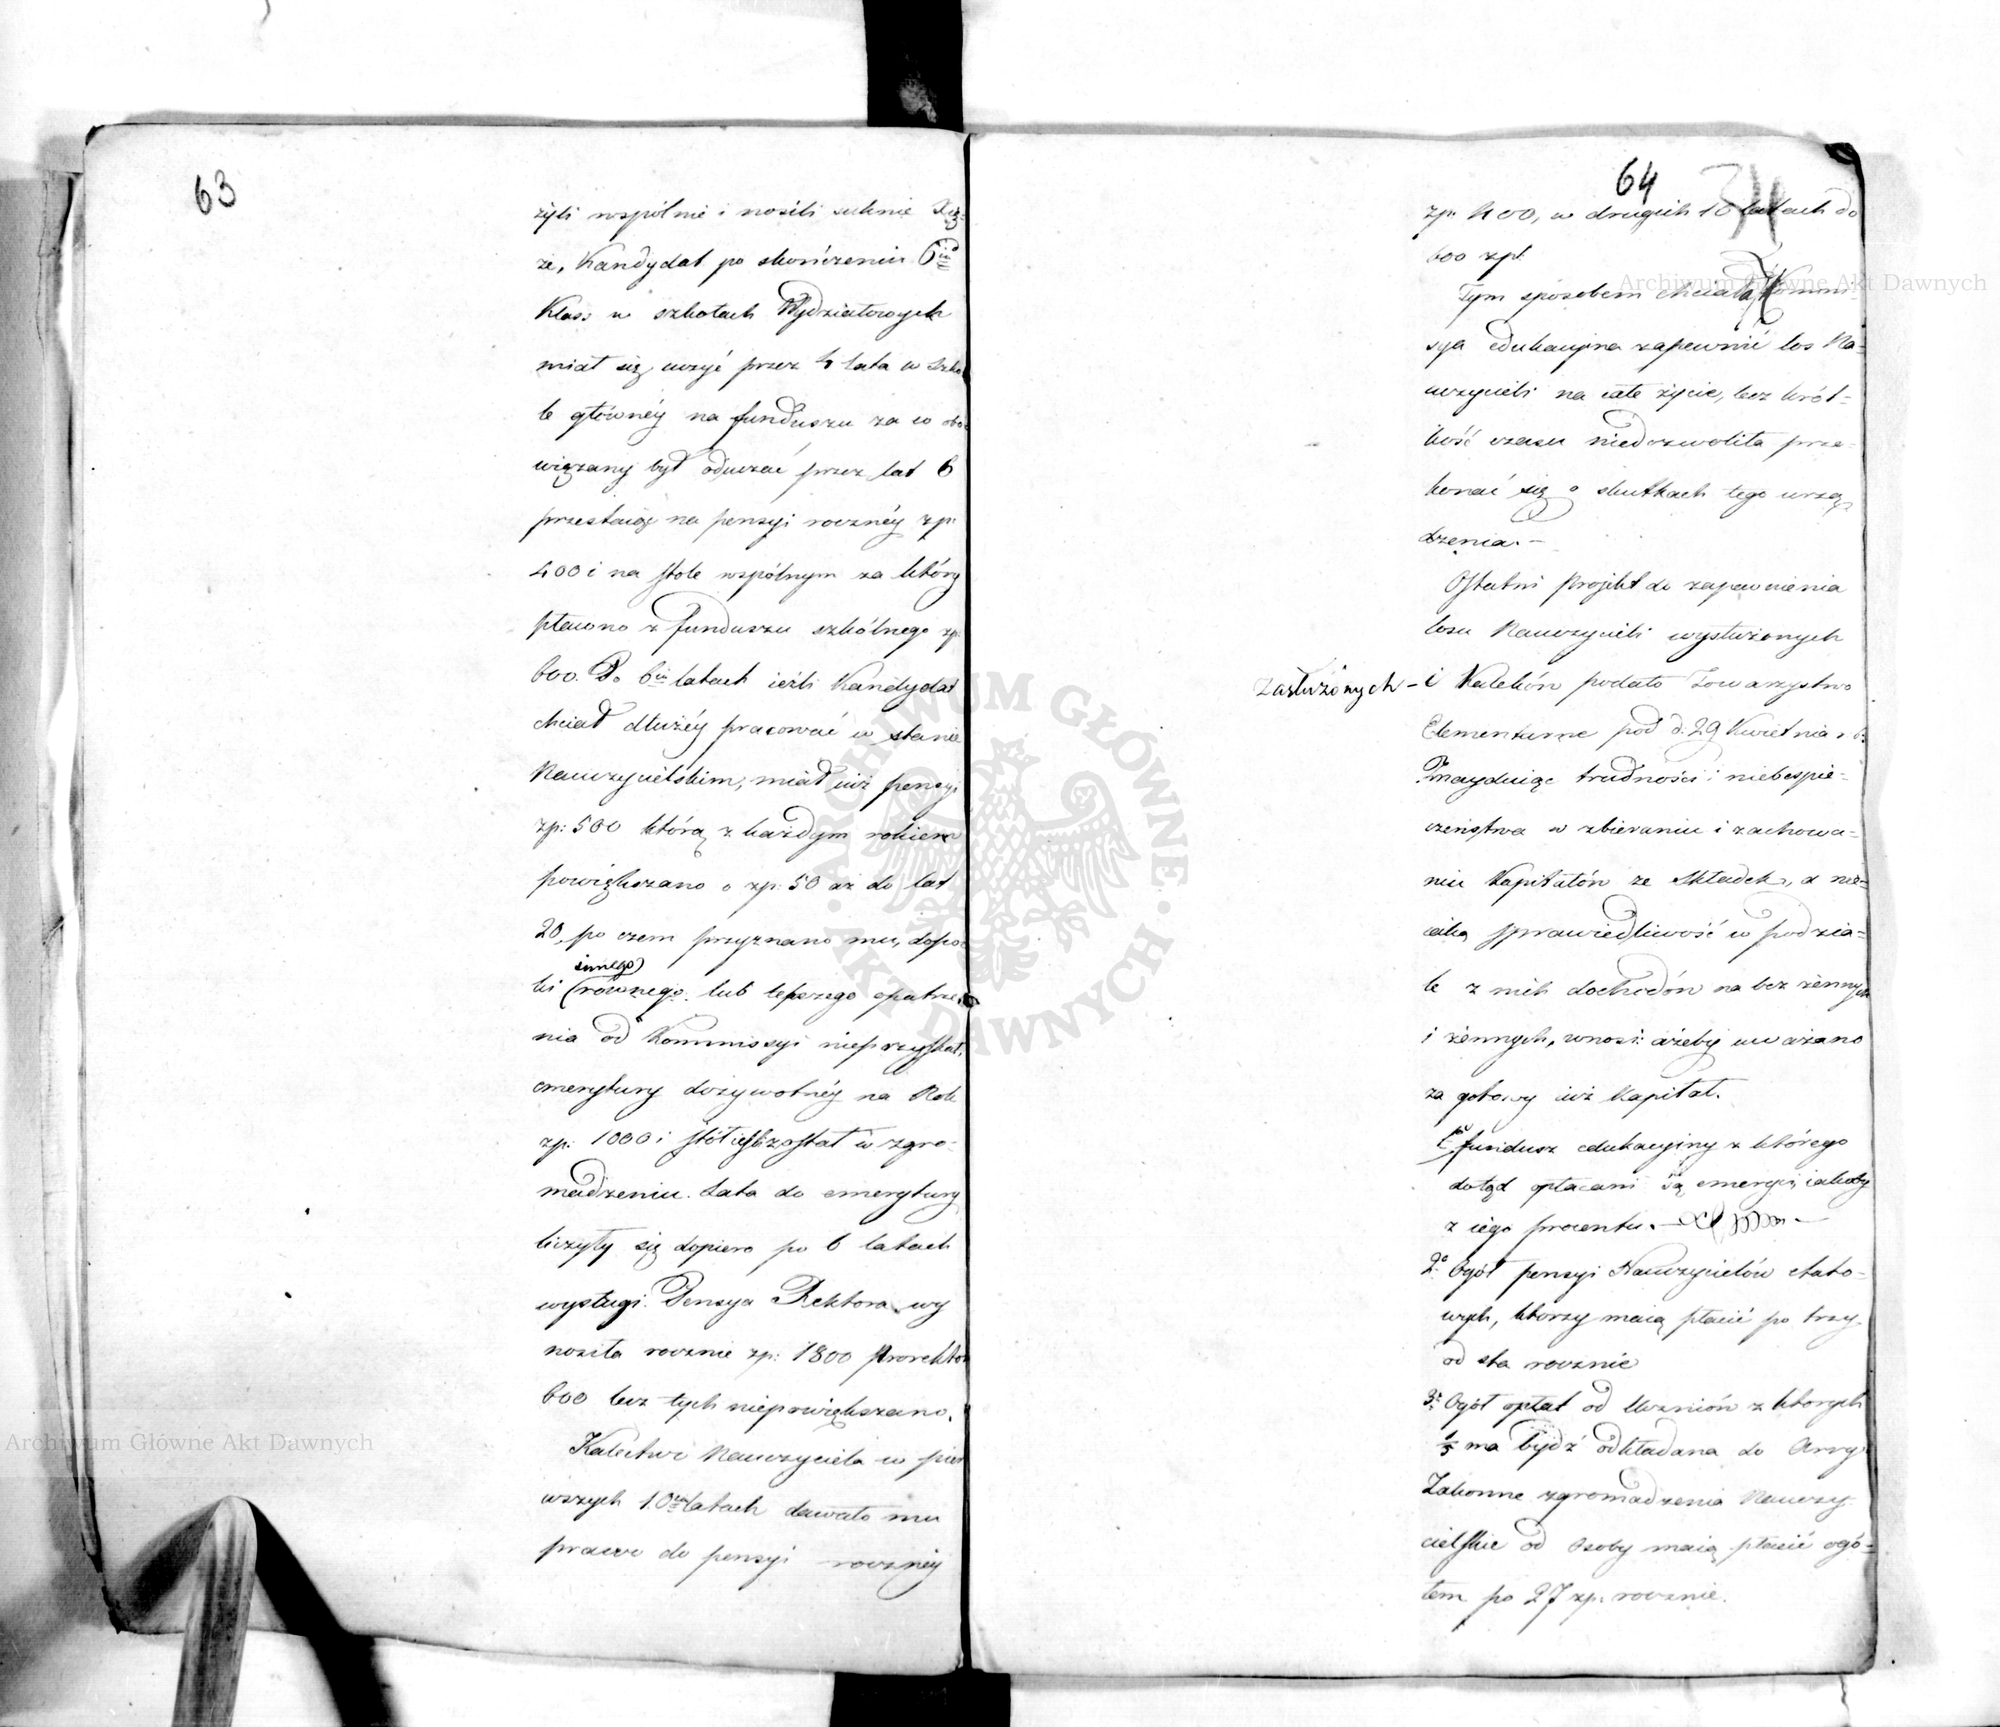 63
żyli wspólnie i nosili suknie Xię-
że, Kandydat po skończeniu 6ciu
Klass w szkołach Wydziałowych
miał się uczyć przez 4 lata w szko
le główney na funduszu za co obo
wiązany był oduczać przez lat 6
przestaiąc na pensyi roczney zp:
400 i na stole wspólnym za który
płacono z funduszu szkólnego zp:
600. Po 6ciu latach ieźli Kandydat
chciał dłużéy pracować w stanie
Nauczycielskim, miał iuż pensyi
zp: 500 którą z każdym rokiem
powiększano o zp: 50 aż do lat
20, po czem przyznano mu, dopó-
innego
ki (równego lub lepszego opatrze-
nia od Kommissyi nieprzyskał,
emerytury dożywotnéy na Rok
zp: 1000 i stół ieśli został w zgro-
madzeniu. Lata do emerytury
liczyły się dopiero po 6 latach
wysługi. Pensya Rektora wy
nosiła rocznie zp: 1800 Prorektor
600 lecz tych niepowiększano.
Kalectwo Nauczyciela w pier
wszych 10ciu latach dawało mu
prawo do pensyi roczney
64
zp: 400, w drugich 10 latach do
600 zpl.
Tym sposobem chciała Kommi-
sya edukacyjna zapewnić los Na-
uczycieli na całe życie, lecz krót-
kość czasu niedozwoliła prze-
konać się o skutkach tego urzą-
dzenia. -
Ostatni Projekt do zapewnienia
losu Nauczycieli wysłużonych
Zasłużonych - i Kaleków podało Towarzystwo
Elementarne pod d. 29 Kwietnia r. b.
Znayduiąc trudności i niebespie-
czeństwa w zbieraniu i zachowa-
niu Kapitałów ze składek, a nie-
iaką sprawiedliwość w podzia-
le z nich dochodów na bez żennych
i żennych, wnosi: ażeby uważano
za gotowy iuż Kapitał.
1o fundusz edukacyiny z którego
dotąd opłacani są emeryci, iakoby
z iego procentu. -
2o Ogół pensyi Nauczycielów etato-
wych, którzy maią płacić po trzy
od sta rocznie
3o Ogół opłat od Uczniów z których
1/5 ma bydź odkładana do
Zakonne zgromadzenia Nauczy-
cielskie od Osoby maią płacić ogó-
łem po 27 zp: rocznie.
Archiwum Główne Akt Dawnych
Archiwum Główne Akt Dawnych
ARCHIWUM GŁÓWNE · AKT DAWNYCH ·